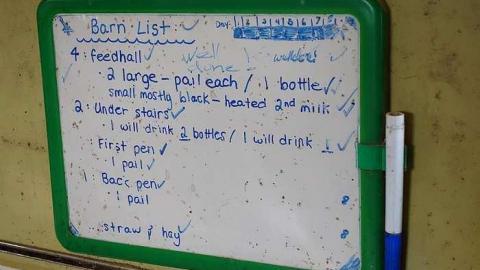 Barn List:
Day: 1 2 3 4 5 6 7
well done!
4: feedhall
2 large - pail each / 1 bottle
small mostly black - heated 2nd milk
2: Under stairs
1 will drink 2 bottles / 1 will drink 1
: First pen
1 pail
1: Back pen
1 pail
: straw & hay